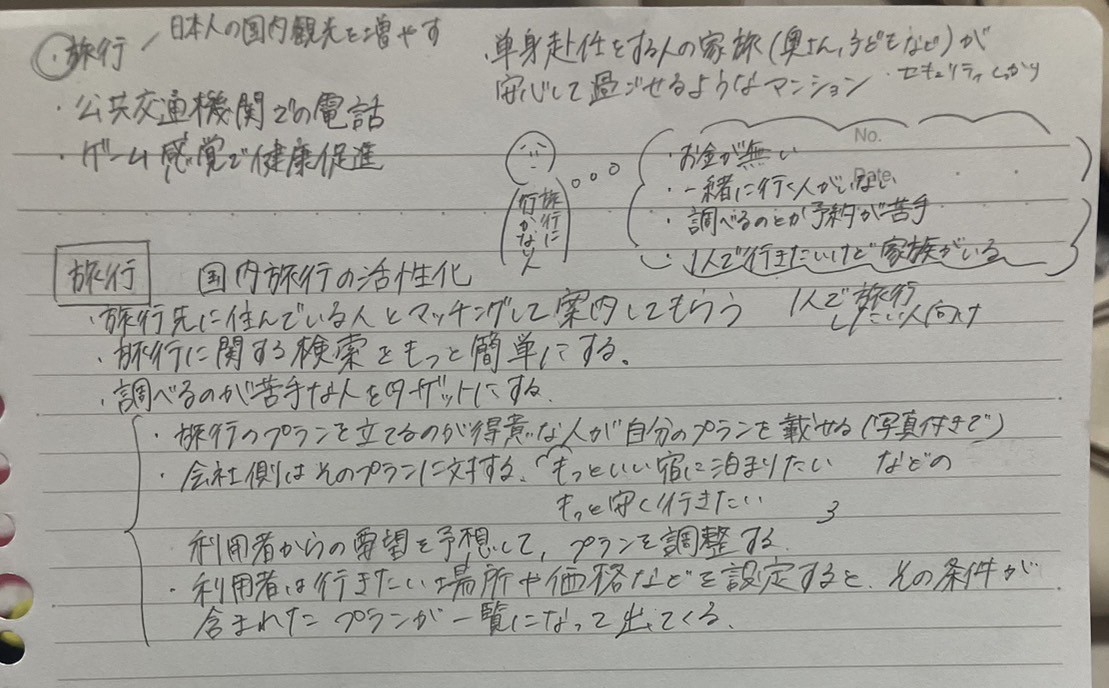 ・旅行 / 日本人の国内観光を増やす
・公共交通機関での電話
・ゲーム感覚で健康促進
・単身赴任をする人の家族(奥さん,子どもなど)が
安心して過ごせるようなマンション ・セキュリティしっかり
旅行に
行かない人
No.
Date
・お金が無い
・一緒に行く人がいない
・調べるのとか予約が苦手
・1人で行きたいけど家族がいる
1人で旅行
したい人向け
旅行 国内旅行の活性化
・旅行先に住んでいる人とマッチングして案内してもらう
・旅行に関する検索をもっと簡単にする。
・調べるのが苦手な人をターゲットにする。
・旅行のプランを立てるのが得意な人が自分のプランを載せる(写真付きで)
・会社側はそのプランに対する、もっといい宿に泊まりたい などの
もっと安く行きたい
利用者からの要望を予想して、プランを調整する。
・利用者は行きたい場所や価格などを設定すると、その条件が
含まれたプランが一覧になって出てくる。